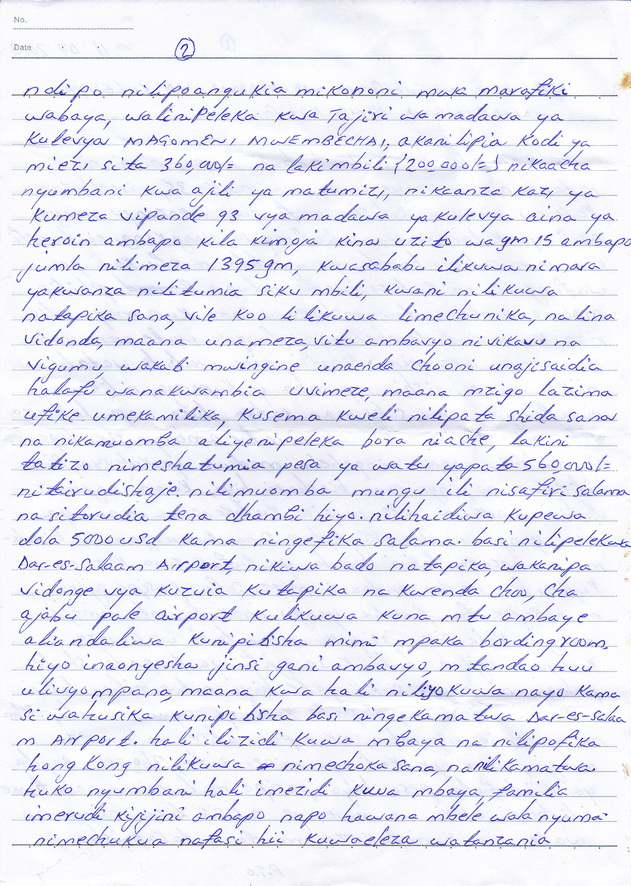 No.
Date
2
ndipo nilipoangukia mikononi mwa marafiki
wabaya, walinipeleka kwa Tajiri wa madawa ya
Kulevya MAGOMENI MWEMBECHAI, akanilipia Kodi ya
miezi sita 360,000/= na laki mbili (200,000/=) nikaacha
nyumbani kwa ajili ya matumizi, nikaanza kazi ya
kumeza vipande 93 vya madawa ya kulevya aina ya
heroin ambapo kila kimoja kina uzito wa gm 15 ambapo
jumla nilimeza 1395gm, kwasababu ilikuwa ni mara
yakwanza nilitumia siku mbili, kwani nilikuwa
natapika sana, vile koo lilikuwa limechunika, na lina
vidonda, maana unameza vitu ambavyo ni vikavu na
vigumu, wakati mwingine unaenda chooni unajisaidia
halafu wanakwambia uvimeze, maana mzigo lazima
ufike umekamilika, kusema kweli nilipata shida sana
na nikamuomba aliyenipeleka bora niache, lakini
tatizo nimeshatumia pesa ya watu yapata 560,000/=
nitairudishaje. nilimuomba mungu ili nisafiri salama
na sitorudia tena dhambi hiyo. nilihaidiwa kupewa
dola 5000 usd kama ningefika salama. basi nilipelekwa
Dar-es-salaam Airport, nikiwa bado natapika, wakanipa
vidonge vya kuzuia kutapika na kwenda choo, cha
ajabu pale airport kulikuwa kuna mtu ambaye
aliandaliwa kunipitisha mimi mpaka bordingroom.
hiyo inaonyesha jinsi gani ambavyo, mtandao huu
ulivyompana, maana kwa hali niliyokuwa nayo kama
si wahusika kunipitisha basi ningekamatwa Dar-es-salaa
m Airport. hali ilizidi kuwa mbaya na nilipofika
hong Kong nilikuwa nimechoka sana, na nilikamatwa
huko nyumbani hali imezidi kuwa mbaya, familia
imerudi kijijini ambapo napo hawana mbele wala nyuma
nimechukua nafasi hii kuwaeleza watanzania